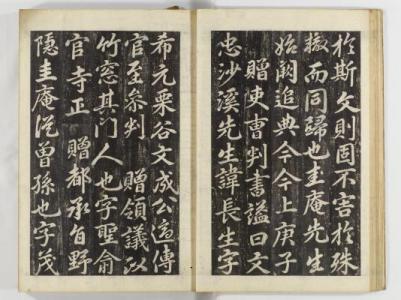 於斯文則固不害於殊
轍而同歸也圭庵先生
始闕追典今今上庚子
贈吏曹判書謚曰文
忠沙溪先生諱長生字
希元栗谷文成公高傳
官至參判 贈領議政
竹窓其門人也字聖俞
官寺正 贈都承旨野
隱圭庵從曾孫也字茂